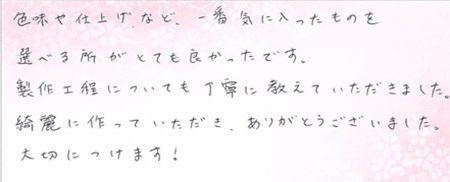 色味や仕上げなど、一番気に入ったものを
選べる所がとても良かったです。
製作工程についても丁寧に教えていただきました。
綺麗に作っていただき、ありがとうございました。
大切につけます!